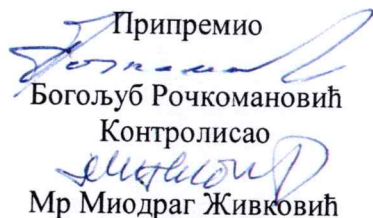 Припремио
Богољуб Рочкомановић
Контролисао
Мр Миодраг Живковић